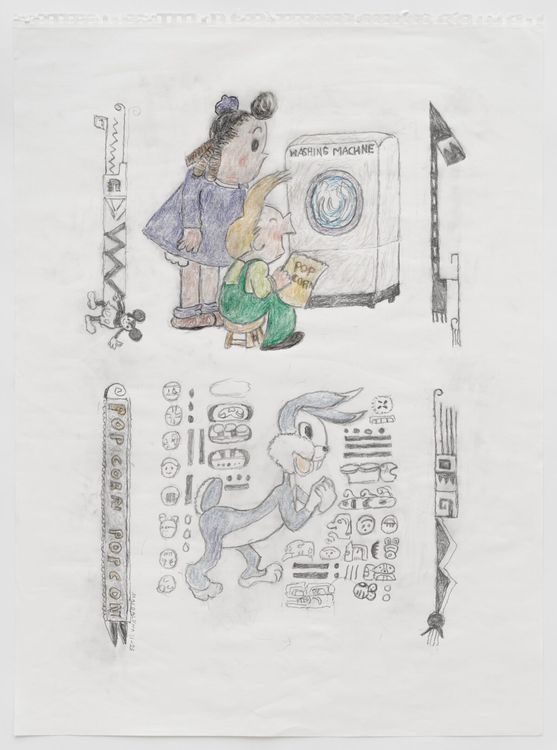 WASHING MACHNE
POP
CORN
POP CORN POPCON